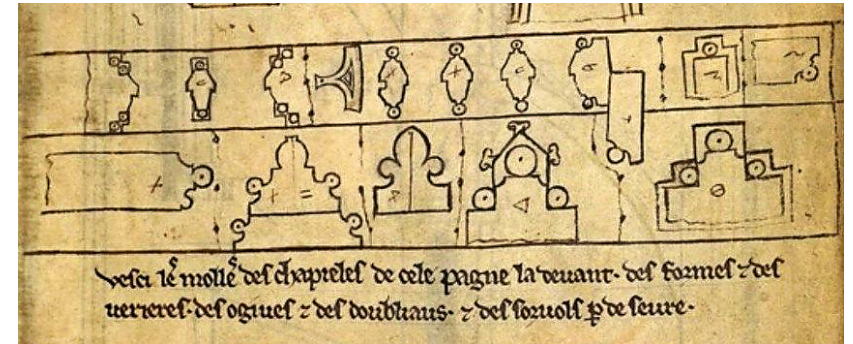 vesci les molles des chapieles de cele pagne la devant · des formes ⁊ des
verieres · des ogives ⁊ des doubliaus · ⁊ des sorvols p̱ deseure ·